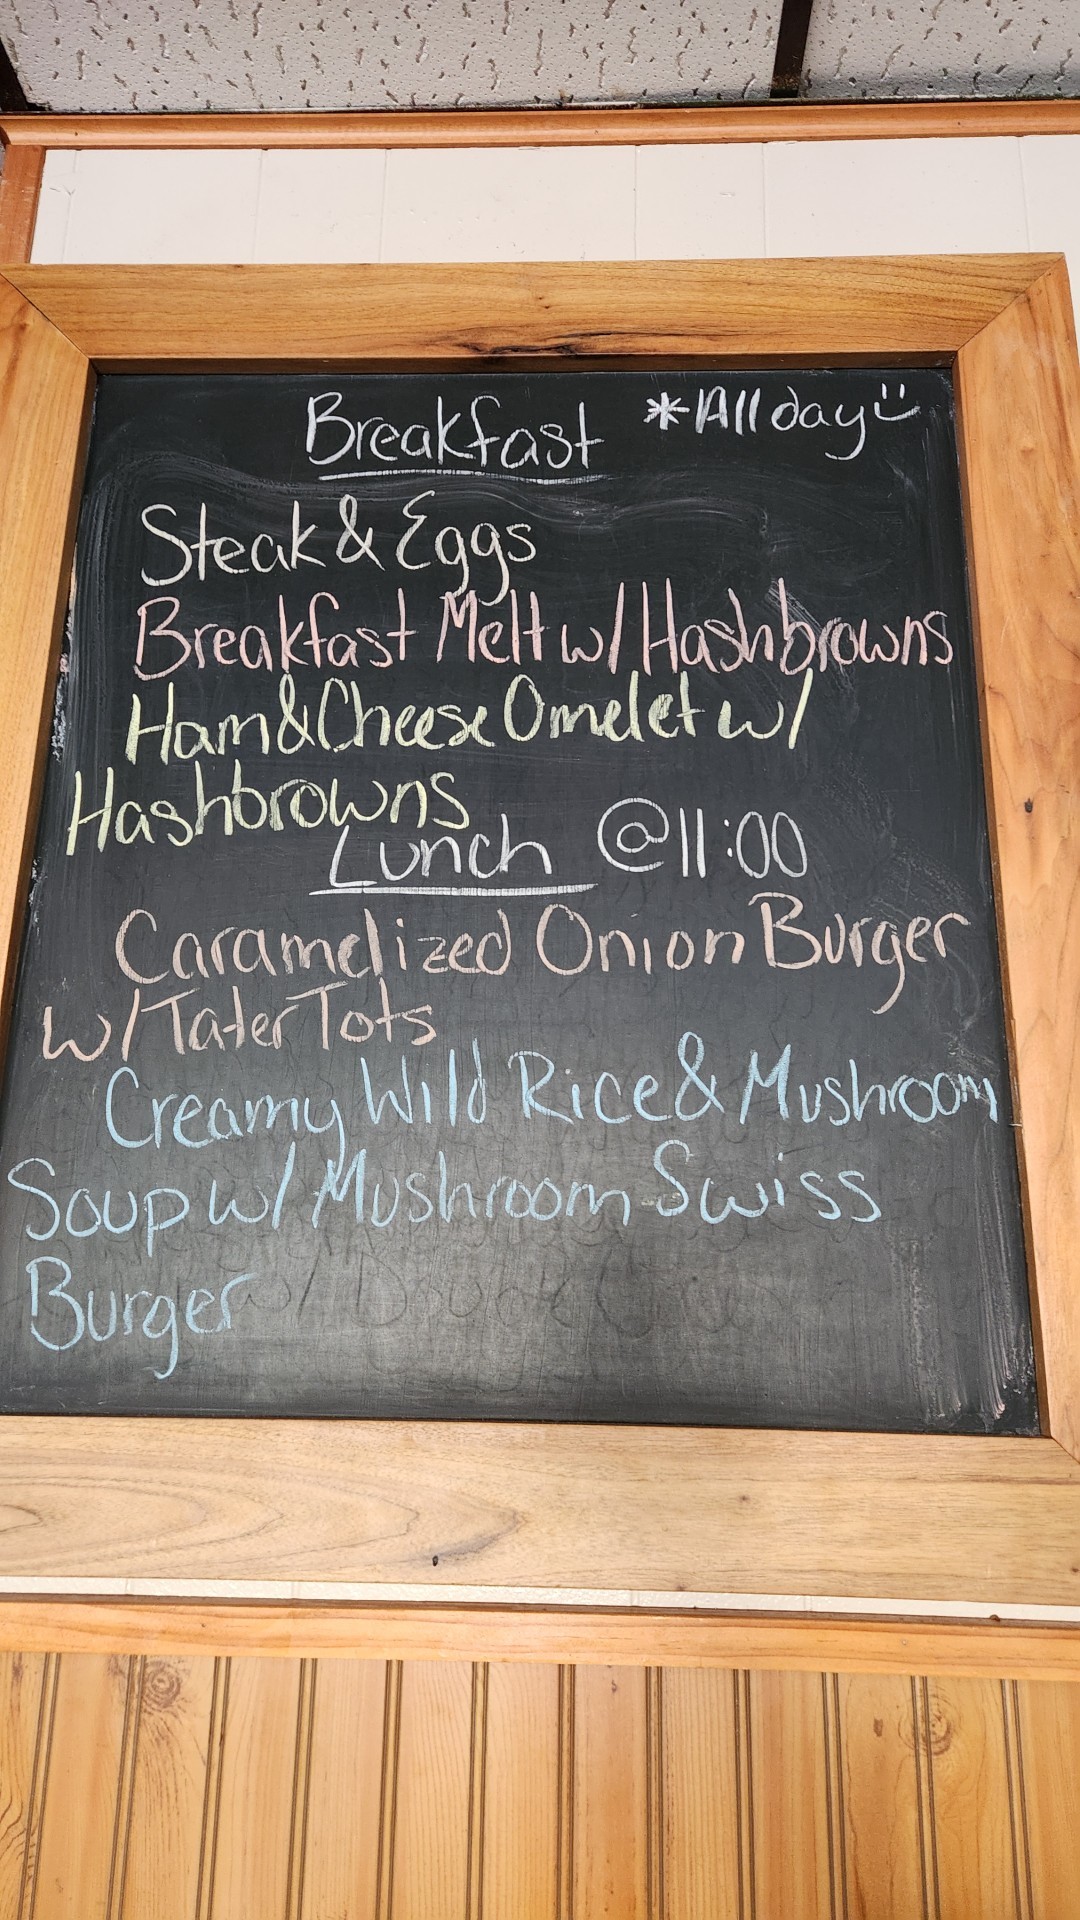 Breakfast *All day
Steak & Eggs
Breakfast Melt w/ Hashbrowns
Ham & Cheese Omelet w/
Hashbrowns
Lunch @ 11:00
Caramelized Onion Burger
w/ Tater Tots
Creamy Wild Rice & Mushroom
Soup w/ Mushroom Swiss
Burger